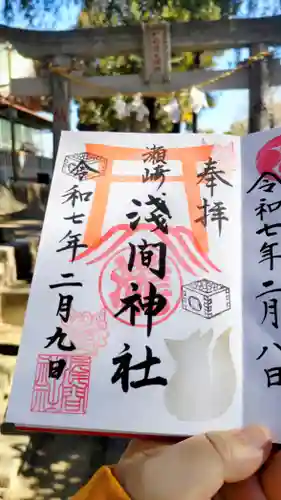 奉拝
瀬崎
浅間神社
令和七年
二月九日
令和七年
二月八日